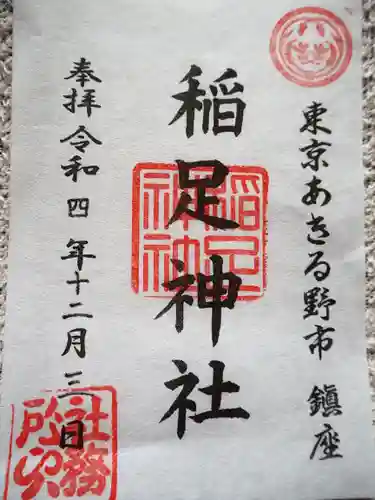 東京あきる野市 鎮座
稲足神社
稲足神社
奉拝 令和四年十二月三日
社務所印